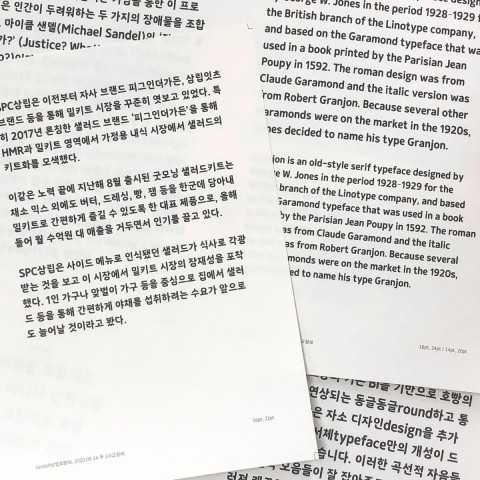 은 인간이 두려워하는 두 가지의 장애물을 조합
마이클 샌델(Michael Sandel)의
가?' (Justice?
SPC삼립은 이전부터 자사 브랜드 피그인더가든, 삼립잇츠
브랜드 등을 통해 밀키트 시장을 꾸준히 엿보고 있었다. 특
히 2017년 론칭한 샐러드 브랜드 '피그인더가든'을 통해
HMR과 밀키트 영역에서 가정용 내식 시장에서 샐러드의
키트화를 모색했다.
이같은 노력 끝에 지난해 8월 출시된 굿모닝 샐러드키트는
채소 믹스 외에도 버터, 드레싱, 빵, 잼 등을 한군데 담아내
밀키트로 간편하게 즐길 수 있도록 한 대표 제품으로, 올해
들어 월 수억원 대 매출을 거두면서 인기를 끌고 있다.
SPC삼립은 사이드 메뉴로 인식됐던 샐러드가 식사로 각광
받는 것을 보고 이 시장에서 밀키트 시장의 잠재성을 포착
했다. 1인 가구나 맞벌이 가구 등을 중심으로 집에서 샐러
드 등을 통해 간편하게 야채를 섭취하려는 수요가 앞으로
도 늘어날 것이라고 봤다.
16pt, 22pt
George W. Jones in the period 1928-1929 f
the British branch of the Linotype company,
and based on the Garamond typeface that wa
used in a book printed by the Parisian Jean
Poupy in 1592. The roman design was from
Claude Garamond and the italic version was
from Robert Granjon. Because several other
aramonds were on the market in the 1920s,
nes decided to name his type Granjon.
jon is an old-style serif typeface designed by
e W. Jones in the period 1928-1929 for the
branch of the Linotype company, and based
Garamond typeface that was used in a book
by the Parisian Jean Poupy in 1592. The roman
as from Claude Garamond and the italic
as from Robert Granjon. Because several
monds were on the market in the 1920s,
ded to name his type Granjon.
18pt, 24pt / 14pt, 20pt
기반으로 호빵의
연상되는 동글동글round하고 통
은 자소 디자인design을 추가
서체typeface만의 개성이 드
습니다. 이러한 곡선적 자음들